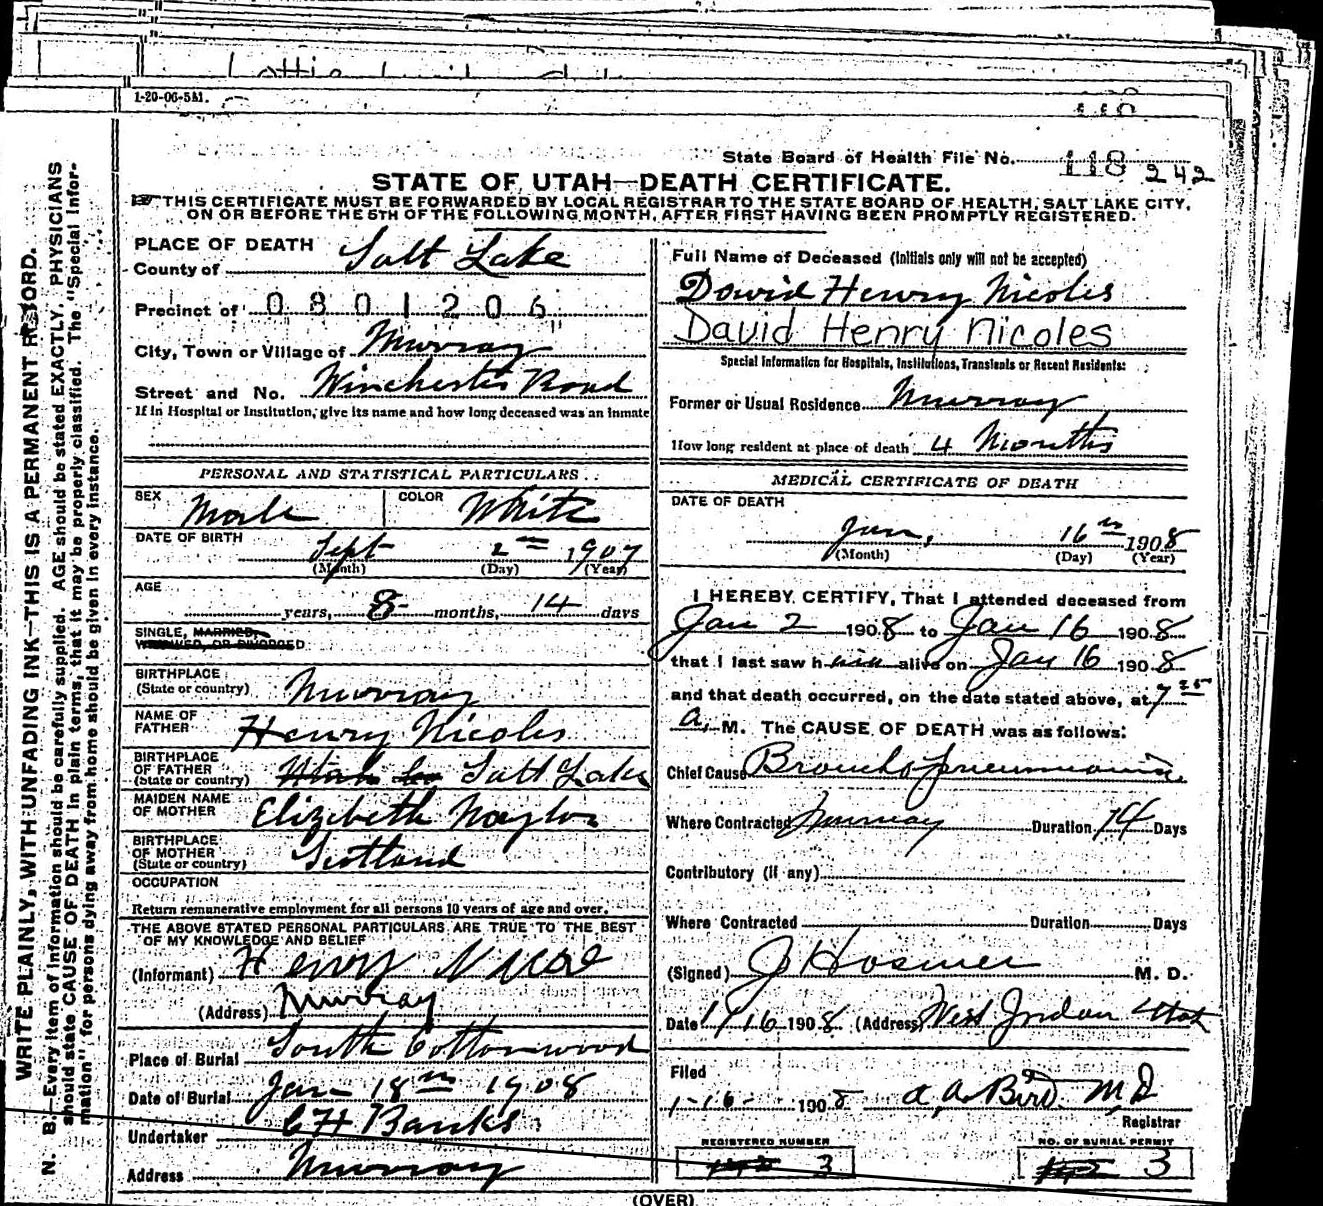 1-20-06-5M.
State Board of Health File No. 118 242
STATE OF UTAH—DEATH CERTIFICATE.
THIS CERTIFICATE MUST BE FORWARDED BY LOCAL REGISTRAR TO THE STATE BOARD OF HEALTH, SALT LAKE CITY,
ON OR BEFORE THE 5TH OF THE FOLLOWING MONTH, AFTER FIRST HAVING BEEN PROMPTLY REGISTERED.
WRITE PLAINLY, WITH UNFADING INK—THIS IS A PERMANENT RECORD.
N. B.—Every item of information should be carefully supplied. AGE should be stated EXACTLY. PHYSICIANS
should state CAUSE OF DEATH in plain terms, that it may be properly classified. The "Special Infor-
mation" for persons dying away from home should be given in every instance.
PLACE OF DEATH
County of Salt Lake
Precinct of 0801206
City, Town or Village of Murray
Street and No. Winchester Road
If in Hospital or Institution, give its name and how long deceased was an inmate
PERSONAL AND STATISTICAL PARTICULARS
SEX Male COLOR White
DATE OF BIRTH Sept 2nd 1907
(Month) (Day) (Year)
AGE
years, 8 months, 14 days
SINGLE, MARRIED,
WIDOWED, OR DIVORCED
BIRTHPLACE
(State or country) Murray
NAME OF
FATHER Henry Nicoles
BIRTHPLACE
OF FATHER
(State or country) Utah Salt Lake
MAIDEN NAME
OF MOTHER Elizibeth Naylor
BIRTHPLACE
OF MOTHER
(State or country) Scotland
OCCUPATION
Return remunerative employment for all persons 10 years of age and over.
THE ABOVE STATED PERSONAL PARTICULARS ARE TRUE TO THE BEST
OF MY KNOWLEDGE AND BELIEF
(Informant) Henry Nicol
(Address) Murray
Place of Burial South Cottonwood
Date of Burial Jan 18th 1908
Undertaker C H Banks
Address Murray
Full Name of Deceased (Initials only will not be accepted)
David Henry Nicoles
David Henry Nicoles
Special Information for Hospitals, Institutions, Transients or Recent Residents:
Former or Usual Residence Murray
How long resident at place of death 4 Months
MEDICAL CERTIFICATE OF DEATH
DATE OF DEATH
Jan. 16th 1908
(Month) (Day) (Year)
I HEREBY CERTIFY, That I attended deceased from
Jan 2 1908 to Jan 16 1908
that I last saw him alive on Jan 16 1908
and that death occurred, on the date stated above, at 7
a. M. The CAUSE OF DEATH was as follows:
Chief Cause Broncho pneumonia
Where Contracted Murray Duration 14 Days
Contributory (if any)
Where Contracted Duration Days
(Signed) J Hosmer M. D.
Date 1/16 1908 (Address) West Jordan Utah
Filed
1-16- 1908 A. A. Bird M,D
Registrar
REGISTERED NUMBER
3
NO. OF BURIAL PERMIT
3
(OVER)